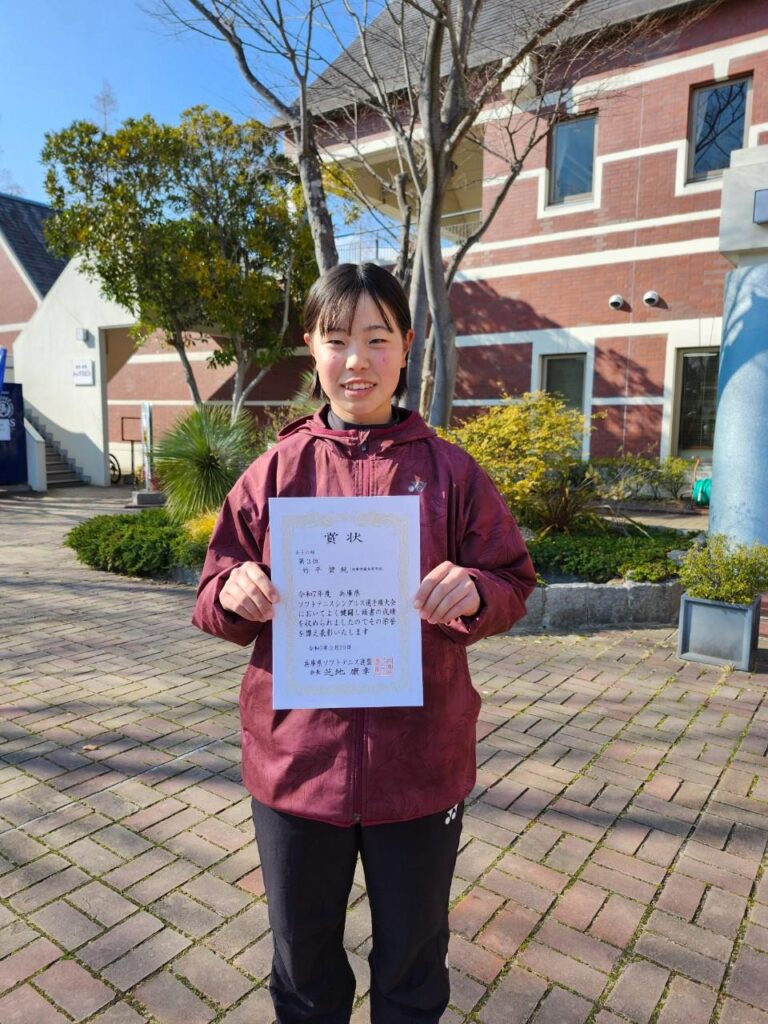 賞状
女子の部
第3位
竹平碧純
令和7年度 兵庫県
ソフトテニスシングルス選手権大会
においてよく健闘し頭書の成績
を収められましたのでその栄誉
を讃え表彰いたします
令和7年3月20日
兵庫県ソフトテニス連盟
会長 芝地康幸